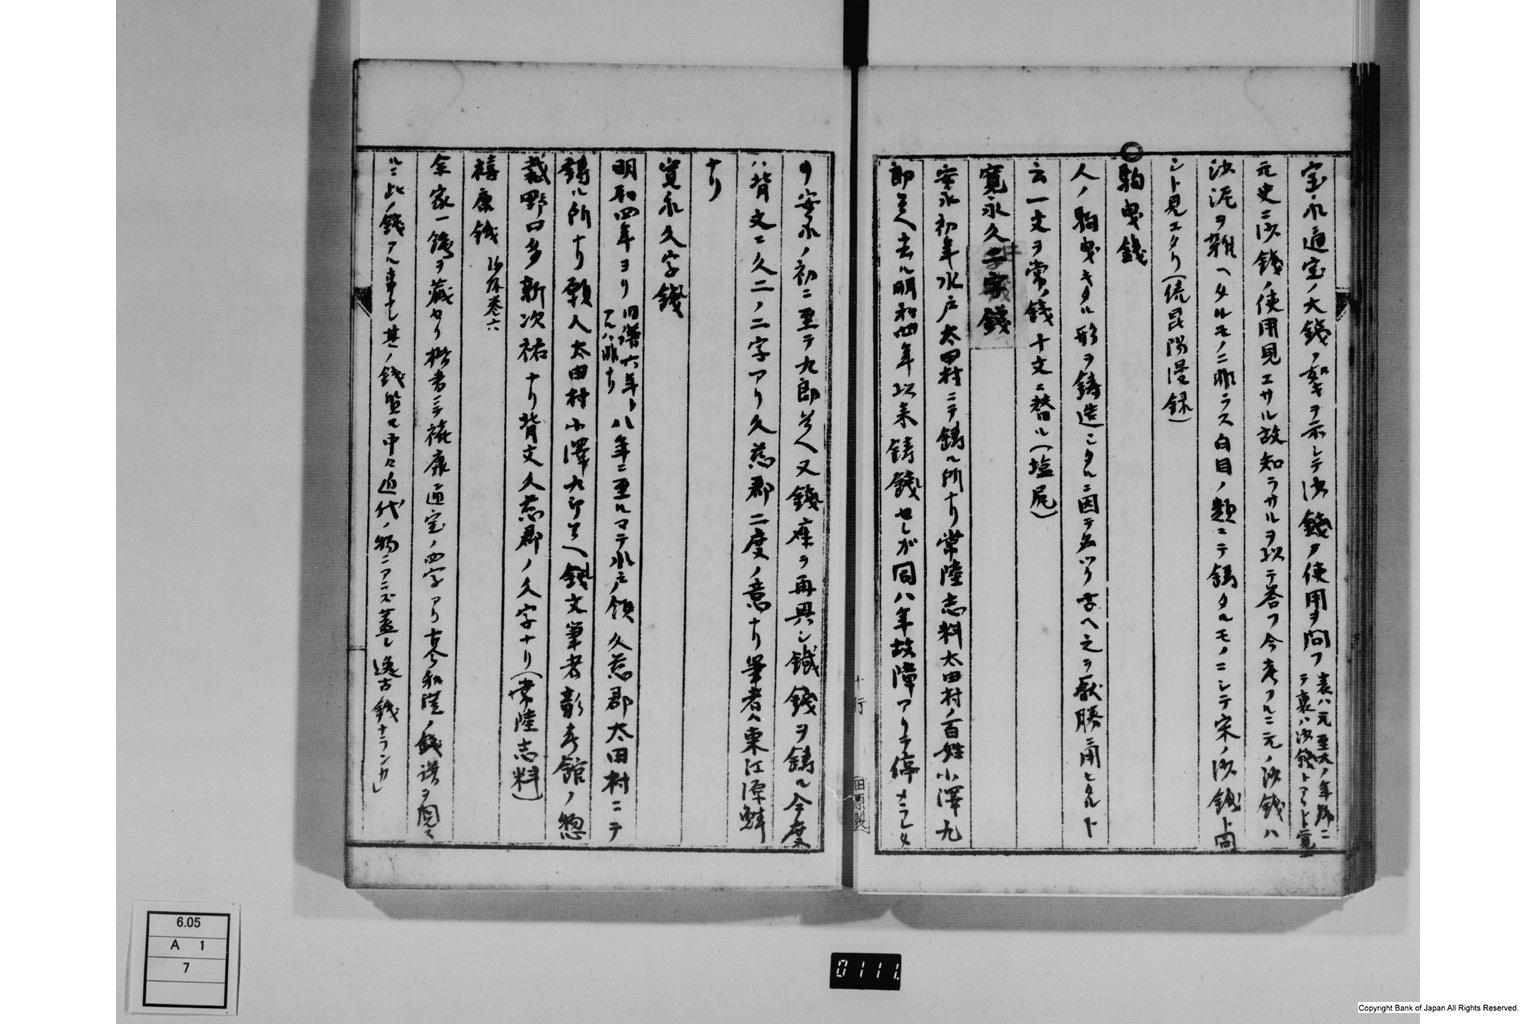 宝永通宝ノ大錢ノ如キヲ示シテ沙錢ノ使用ヲ問フ
元史ニ沙錢ノ使用見エサル故知ラサルヲ以テ答フ今考フルニ元ノ沙錢ハ
沙泥ヲ雜ヘタルモノニ非ラス白目ノ類ニテ鋳タルモノニシテ宋ノ沙錢ト同
シト見エタリ(続昆陽漫録)
駒曳錢
人ノ駒曳キタル形ヲ鋳造シタルニ因テ名ツク
云一文ヲ常ノ錢十文ニ替ル(塩尻)
寛永久二字錢
安永初年水戸太田村ニテ鋳ル所ナリ常陸志料太田村ノ百姓小澤九
郎兵へ去ル明和四年以来鋳錢セしが同八年故障アリテ停
ヲ安永ノ初ニ至テ九郎兵へ又錢座ヲ再興シ鐵錢ヲ鋳ル今度
ハ背文ニ久二ノ二字アリ久慈郡二度ノ意ナリ筆者ハ東江源鱗
ナリ
寛永久字錢
明和四年ヨリ
旧譜六年ト
アルハ非ナリ
八年ニ至ルマテ水戸ノ領久慈郡太田村ニテ
鋳ル所ナリ願人太田村小澤九郎兵へ錢文筆者彰考館ノ惣
裁野口多新次祐ナリ背文久慈郡ノ久字ナリ(常陸志料)
禧康錢
余家一錢ヲ藏セリ楷書ニテ禧康通宝ノ四字アリ古今和漢ノ錢譜ヲ見
ルニ此ノ錢アル事ナし其ノ錢質ハ中々近代ノ物ニアラズ蓋シ逸古錢ナランカ
6.05
A 1
7
0111.
Copyright Bank of Japan All Rights Reserved.